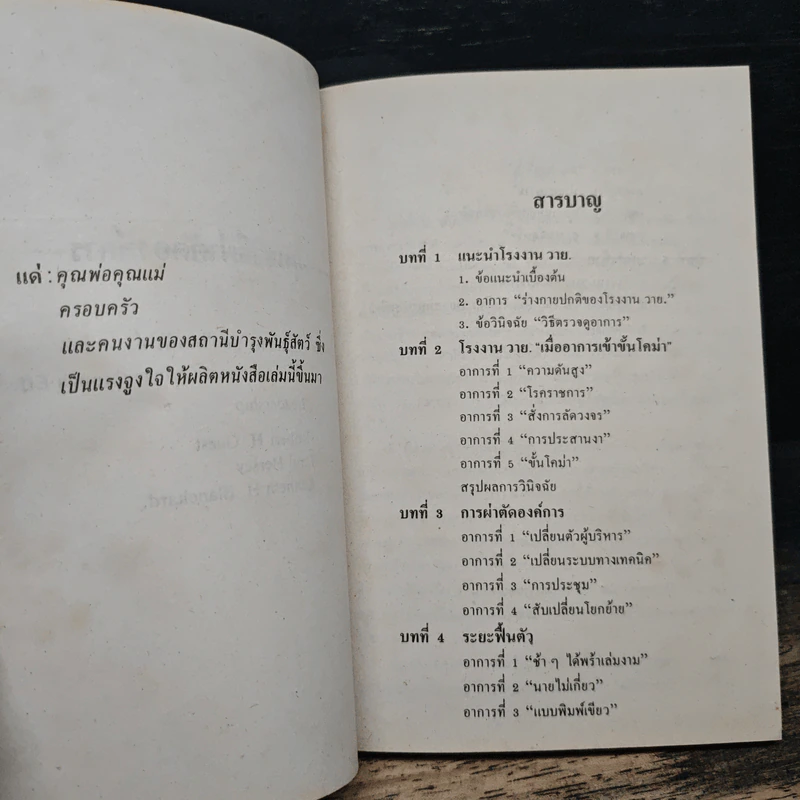 แด่ : คุณพ่อคุณแม่
ครอบครัว
และคนงานของสถานีบำรุงพันธุ์สัตว์ ซึ่ง
เป็นแรงจูงใจให้ผลิตหนังสือเล่มนี้ขึ้นมา
สารบาญ
บทที่ 1 แนะนำโรงงาน วาย.
1. ข้อแนะนำเบื้องต้น
2. อาการ “ร่างกายปกติของโรงงาน วาย.”
3. ข้อวินิจฉัย “วิธีตรวจดูอาการ”
บทที่ 2 โรงงาน วาย. “เมื่ออาการเข้าขั้นโคม่า”
อาการที่ 1 “ความดันสูง”
อาการที่ 2 “โรคราชการ”
อาการที่ 3 “สั่งการลัดวงจร”
อาการที่ 4 “การประสานงา”
อาการที่ 5 “ขั้นโคม่า”
สรุปผลการวินิจฉัย
บทที่ 3 การผ่าตัดองค์การ
อาการที่ 1 “เปลี่ยนตัวผู้บริหาร”
อาการที่ 2 “เปลี่ยนระบบทางเทคนิค”
อาการที่ 3 “การประชุม”
อาการที่ 4 “สับเปลี่ยนโยกย้าย”
บทที่ 4 ระยะฟื้นตัว
อาการที่ 1 “ช้า ๆ ได้พร้าเล่มงาม”
อาการที่ 2 “นายไม่เกี่ยว”
อาการที่ 3 “แบบพิมพ์เขียว”